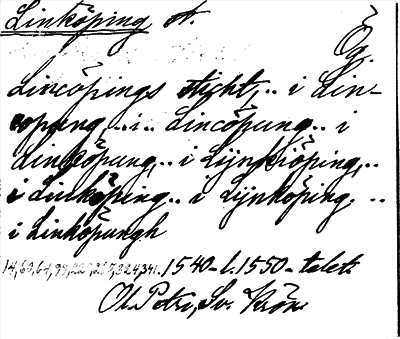 Linköping st.
Ög.
Lincöpings sticht, .. i Lin-
copung, .. i .. Lincöpung .. i
Linköpung, .. i Lijnkiöping, ..
i Linköping .. i Lijnköping, ..
i Linköpungh
1540-t. 1550-talet
Ol. Petri, Sv. Krön.